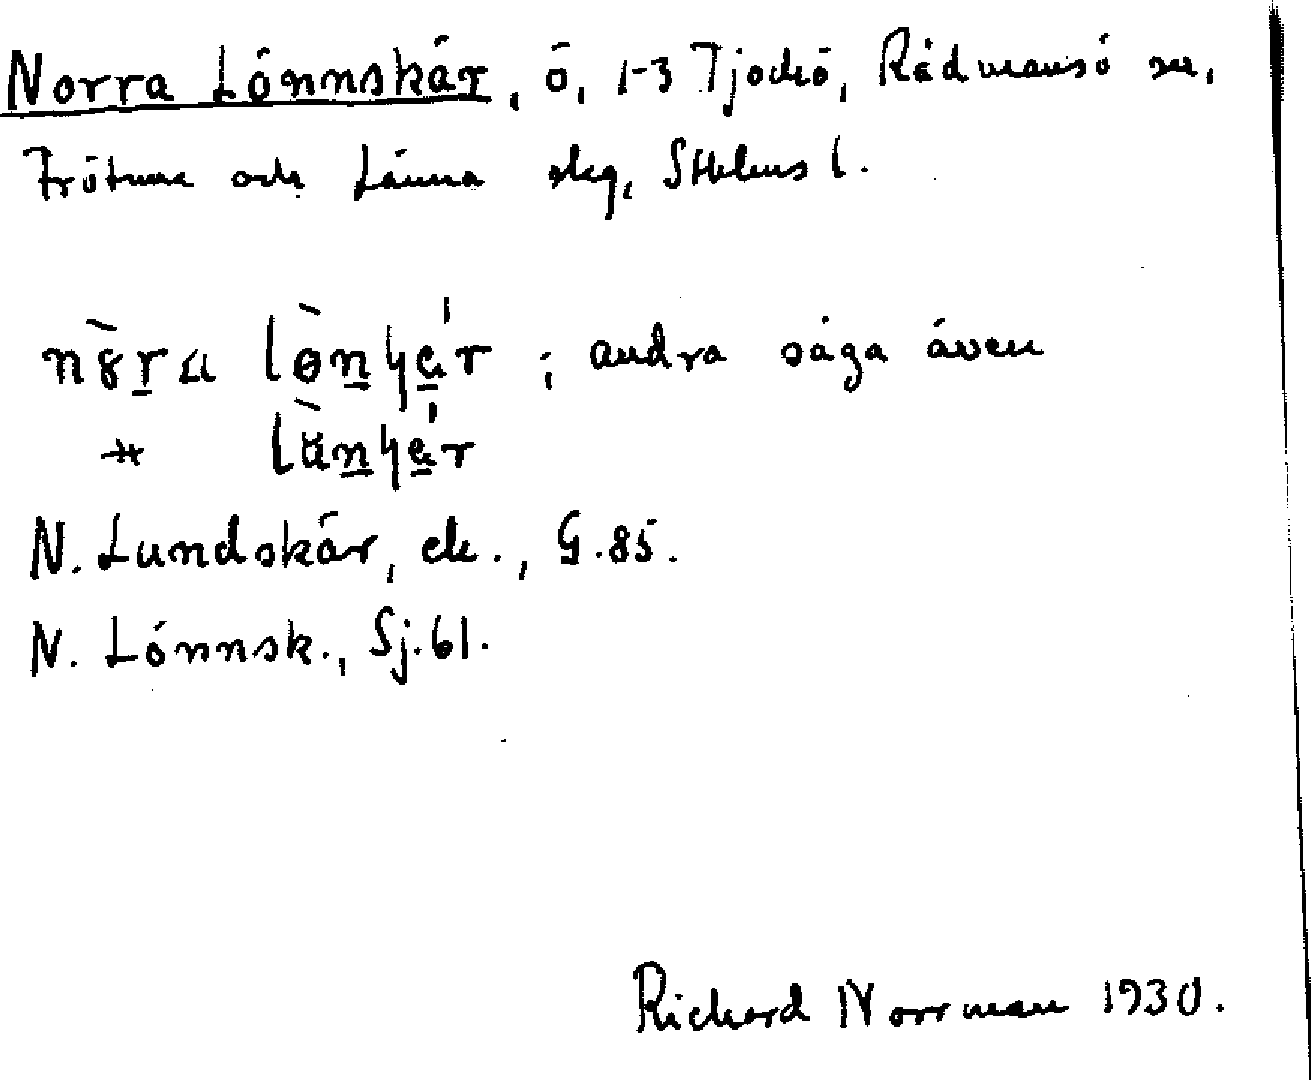 Norra Lönnskär, ö, 1-3 Tjockö, Rådmansö sn,
Frötuna och Länna skg, Sthlms l.
; andra säga även
N. Lundskär, ek., G.85.
N. Lönnsk., Sj.61.
Richard Norrman 1930.